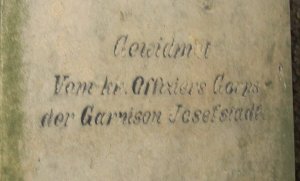 Gewidmet
Vom kk. Offiziers Corps
der Garnison Josefstadt.